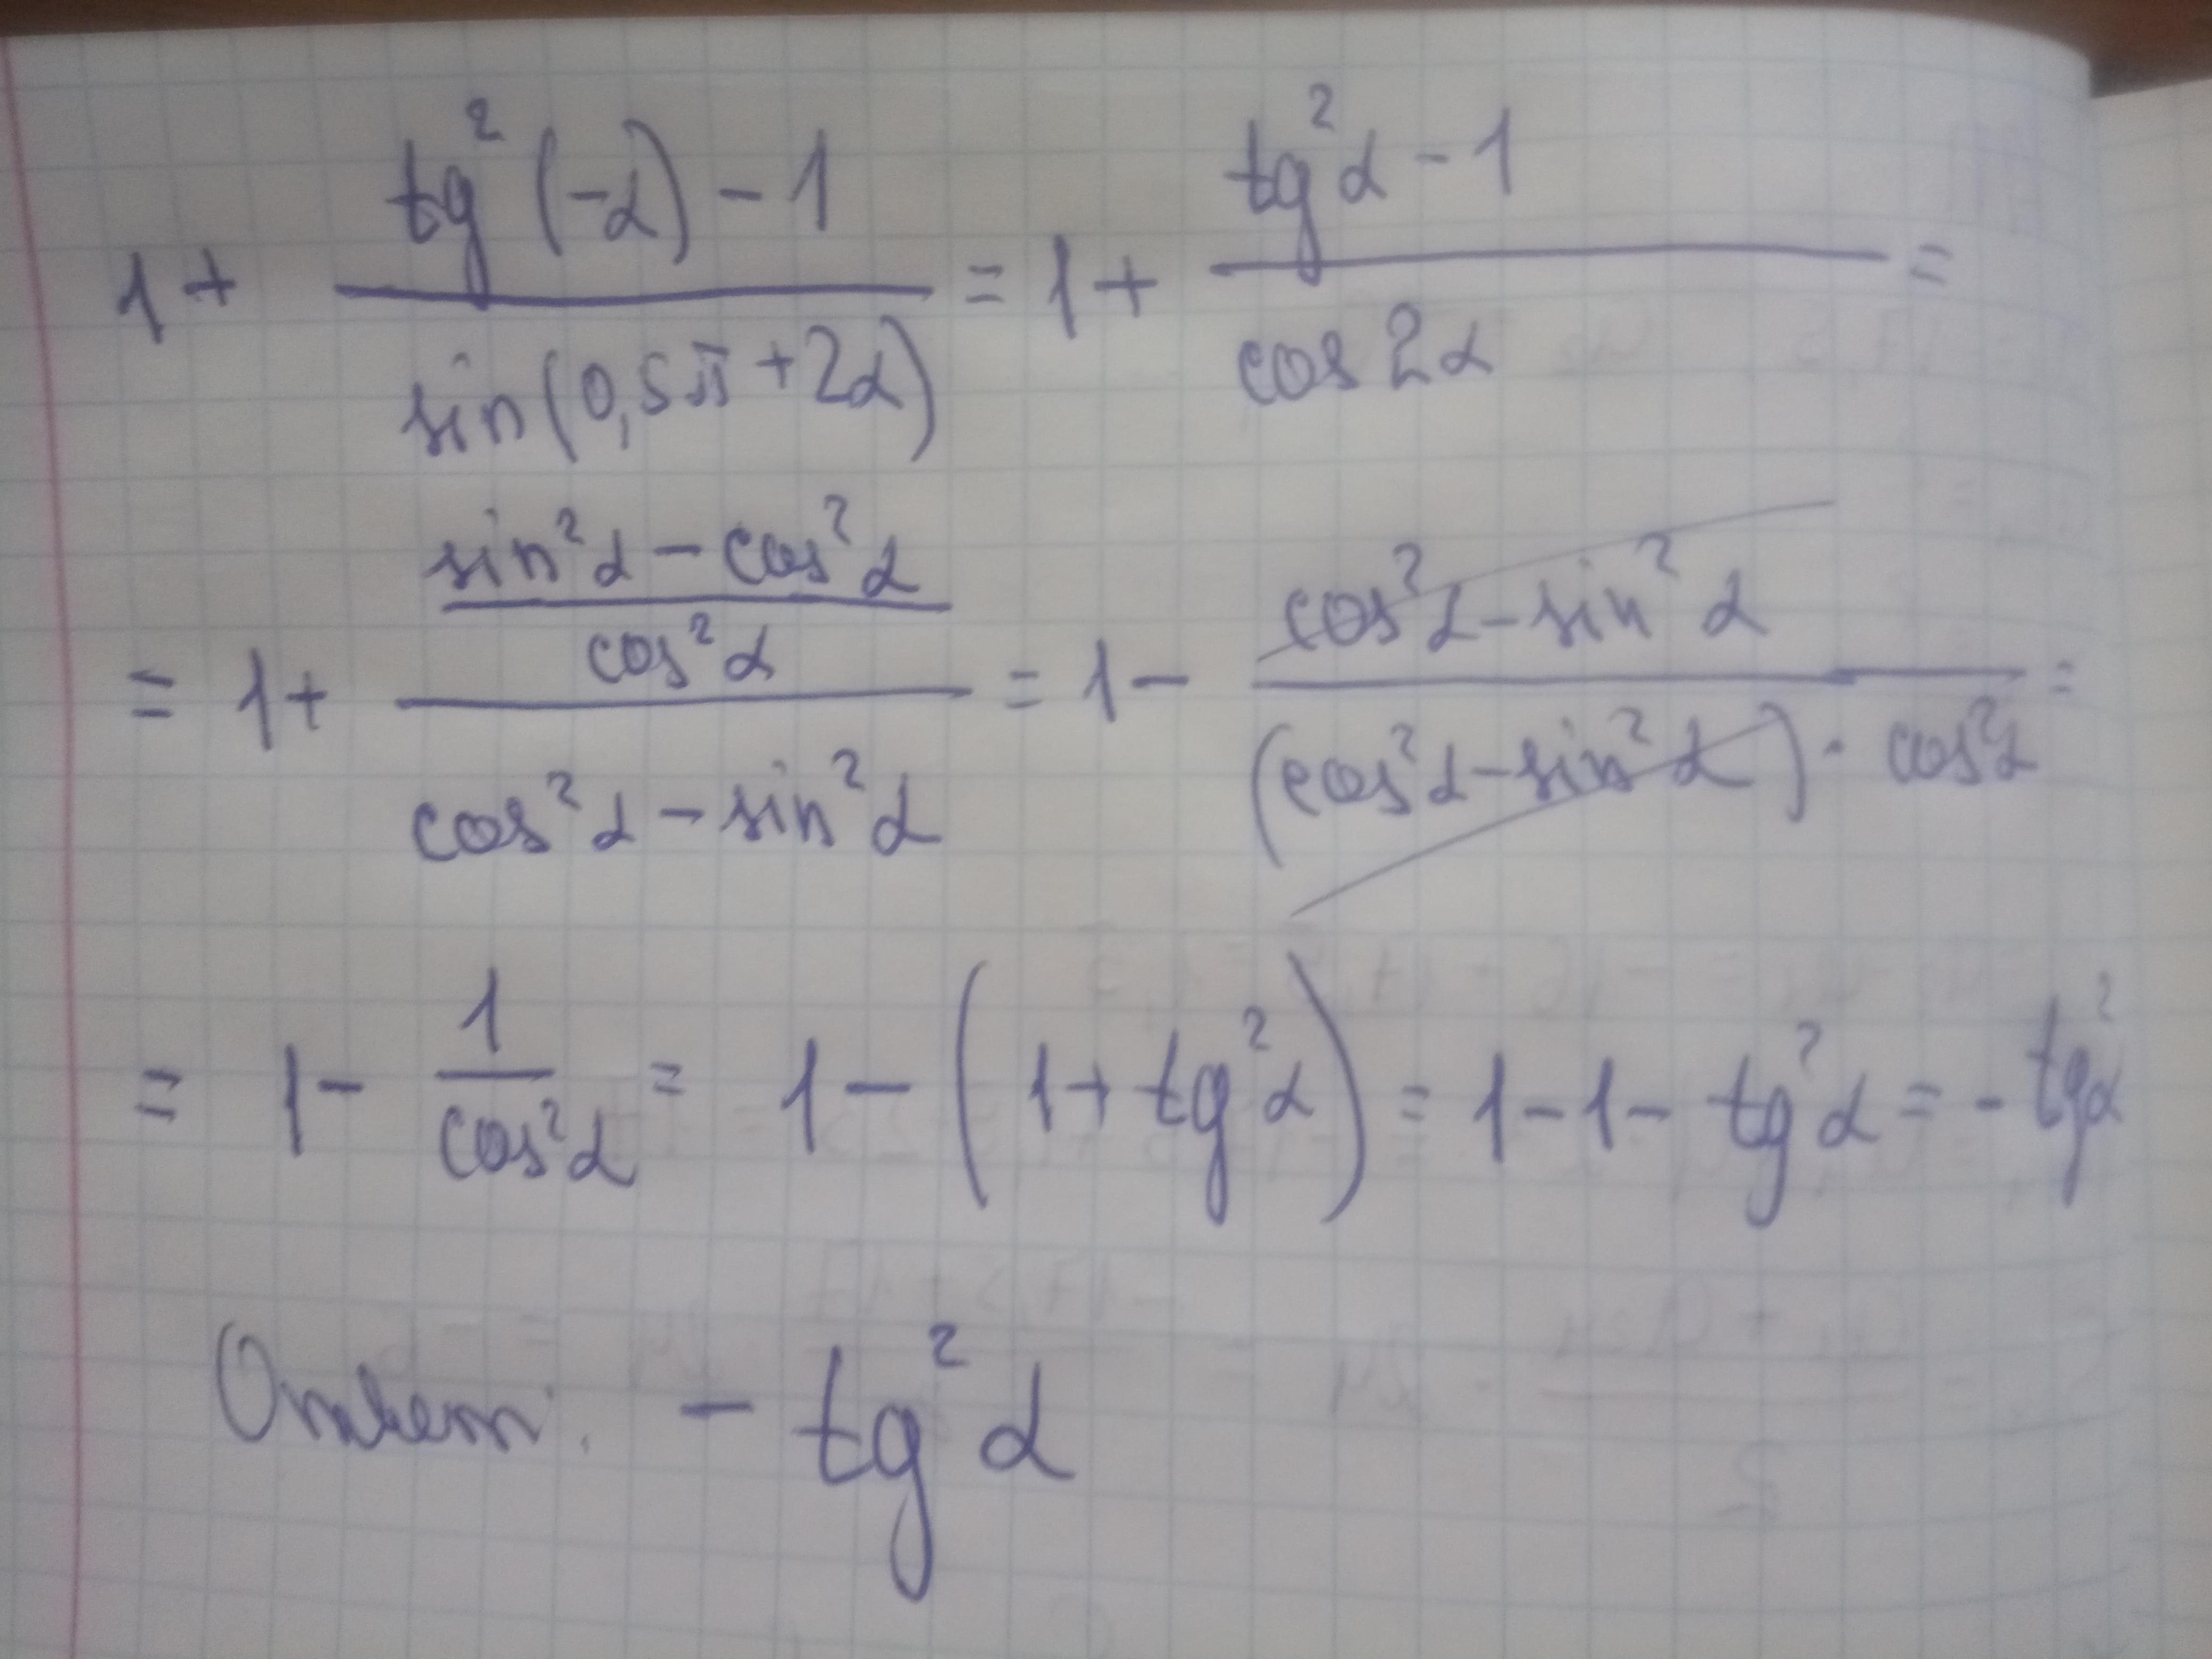 1 + (tg²(-α) - 1)/(sin(0,5π + 2α)) = 1 + (tg²α - 1)/(cos 2α) =
= 1 + ((sin²α - cos²α)/(cos²α))/(cos²α - sin²α) = 1 - (cos²α - sin²α)/((cos²α - sin²α) · cos²α) =
= 1 - 1/(cos²α) = 1 - (1 + tg²α) = 1 - 1 - tg²α = - tg²α
Ответ: - tg²α